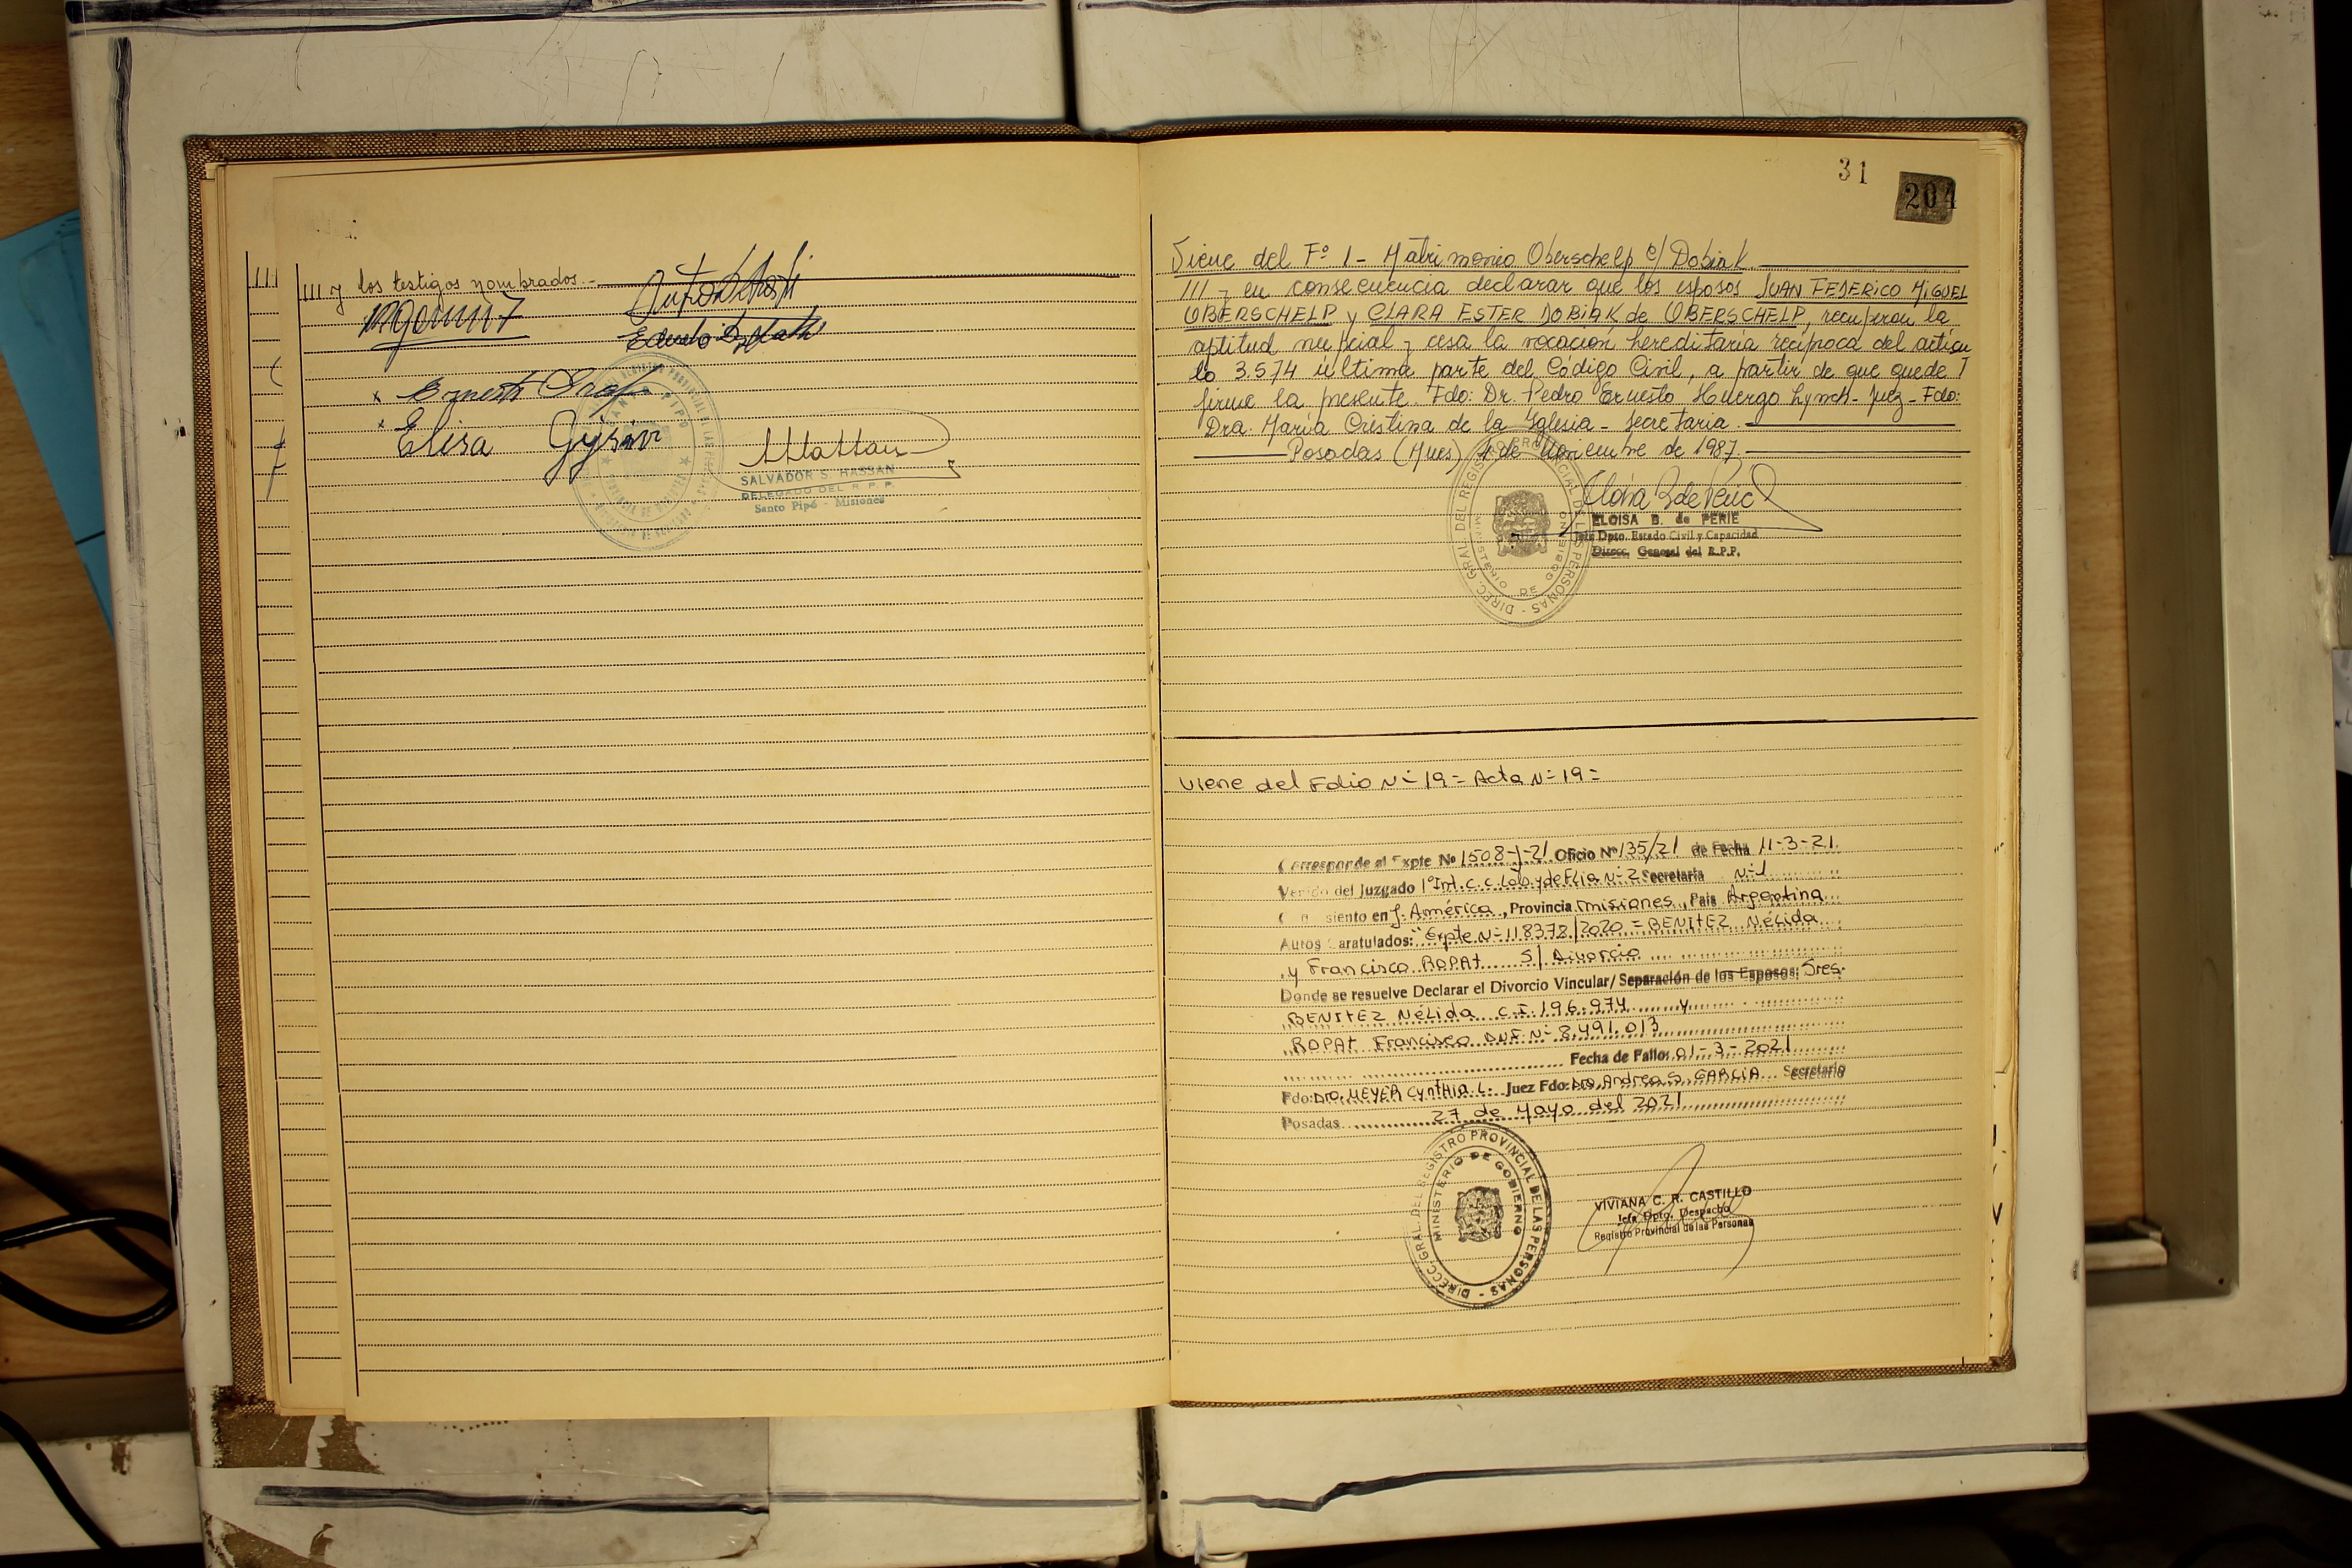 III y los testigos nombrados.-
Elisa Gysin
SALVADOR S. HASSAN
DELEGADO DEL R. P. P.
Santo Pipó - Misiones
31
204
Viene del Fº 1 - Matrimonio Oberschelp c/ Dobiak
III y en consecuencia declarar que los esposos JUAN FEDERICO MIGUEL
OBERSCHELP y CLARA ESTER DOBIAK de OBERSCHELP, recuperan la
aptitud nupcial y cesa la vocación hereditaria recíproca del artícu
lo 3.574 última parte del Código Civil, a partir de que quede
firme la presente. Fdo: Dr. Pedro Ernesto Huergo Lynch - Juez - Fdo:
Dra. María Cristina de la Iglesia - Secretaria.
Posadas (Mnes) 4 de Noviembre de 1987.
DIREC. GRAL. DEL REGISTRO PROVINCIAL DE LAS PERSONAS - MINISTERIO DE GOBIERNO
ELOISA B. de PERIE
Jefa Dpto. Estado Civil y Capacidad
Direcc. General del R.P.P.
Viene del Folio Nº 19 = Acta Nº 19 =
Corresponde al Expte Nº 1508-J-21 Oficio Nº 135/21 de Fecha 11-3-21.
Venido del Juzgado 1º Int. C.C. Lab. y de Flia Nº 2 Secretaría Nº 1
siento en J. América, Provincia Misiones, País Argentina
Autos Caratulados: "Expte Nº 118378/2020 = BENITEZ Nélida
y Francisco ROPAt S/ Divorcio
Donde se resuelve Declarar el Divorcio Vincular/ Separación de los Esposos: Sres.
BENITEZ Nélida C.I. 196.974 y
ROPAt Francisco DNI Nº 8.491.013
Fecha de Fallo: 01-3-2021
Fdo: Dra. MEYER Cynthia L. Juez Fdo: Dra. Andrea S. GARCIA Secretario
Posadas 27 de Mayo del 2021
DIRECC. GRAL. DEL REGISTRO PROVINCIAL DE LAS PERSONAS - MINISTERIO DE GOBIERNO
VIVIANA C. R. CASTILLO
Jefa Dpto. Despacho
Registro Provincial de las Personas